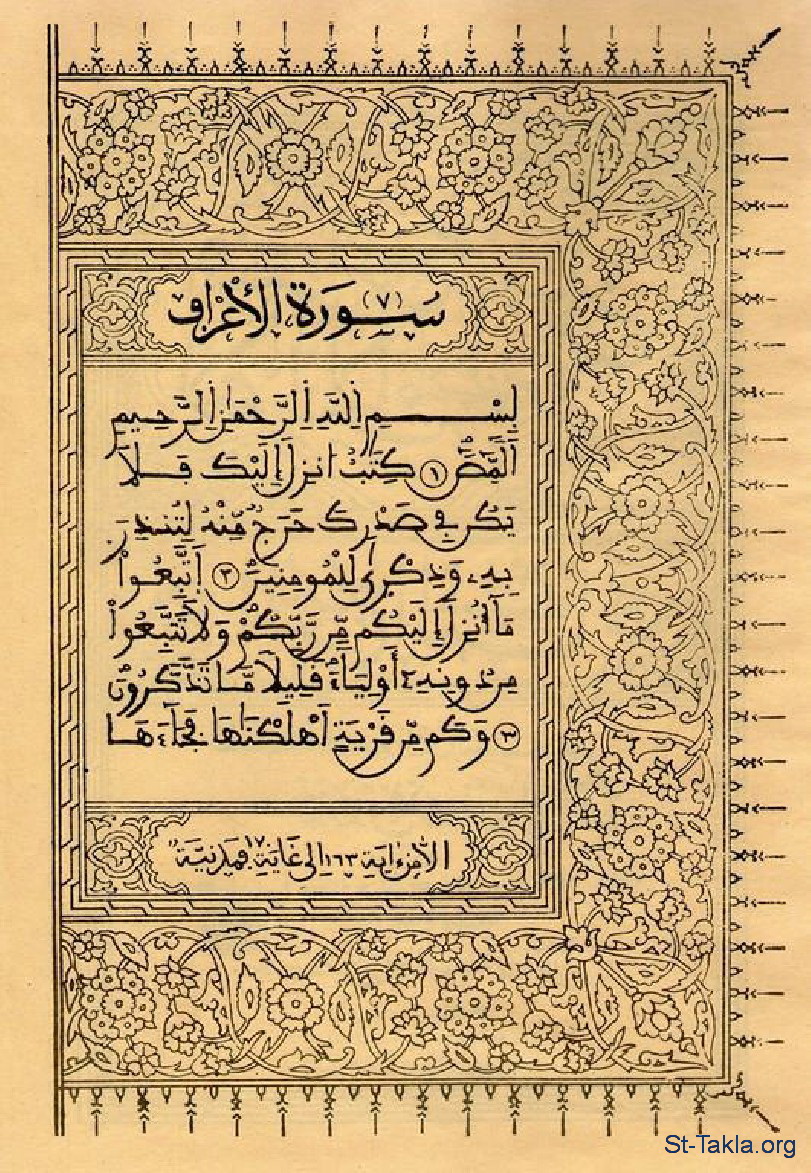 سُورَةُ (٧) الأَعْرَافِ
بِسْمِ اِللَّهِ اِلرَّحْمَٰنِ اِلرَّحِيمِ
أَلَٓمِّٓصَٓ (١) كِتَٰبٌ انزِلَ إِلَيْكَ فَلَا
يَكُن فِي صَدْرِكَ حَرَجٌ مِّنْهُ لِتُنذِرَ
بِهِۦ وَذِكْرَىٰ لِلْمُومِنِينَ (٢) اَتَّبِعُواْ
مَآ أُنزِلَ إِلَيْكُم مِّن رَّبِّكُمْ وَلَا تَتَّبِعُواْ
مِن دُونِهِۦٓ أَوْلِيَآءَ قَلِيلًا مَّا تَذَّكَّرُونَ
(٣) وَكَم مِّن قَرْيَةٍ اَهْلَكْنَٰهَا فَجَآءَهَا
الا من ءاية ١٦٣ إلى غاية ١٧٠ فمدنية
St-Takla.org